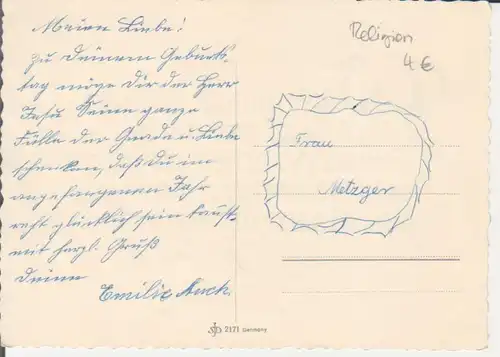 Meine Liebe!
Zu Deinem Geburts-
tag möge Dir der Herr
Jesu Seine ganze
Fülle der Gnade u. Liebe
schenken, daß Du im
angefangenen Jahr
recht glücklich sein kannst.
mit herzl. Gruß
Deine
Emilie
Religion
4 €
Frau
Metzger
2171 Germany